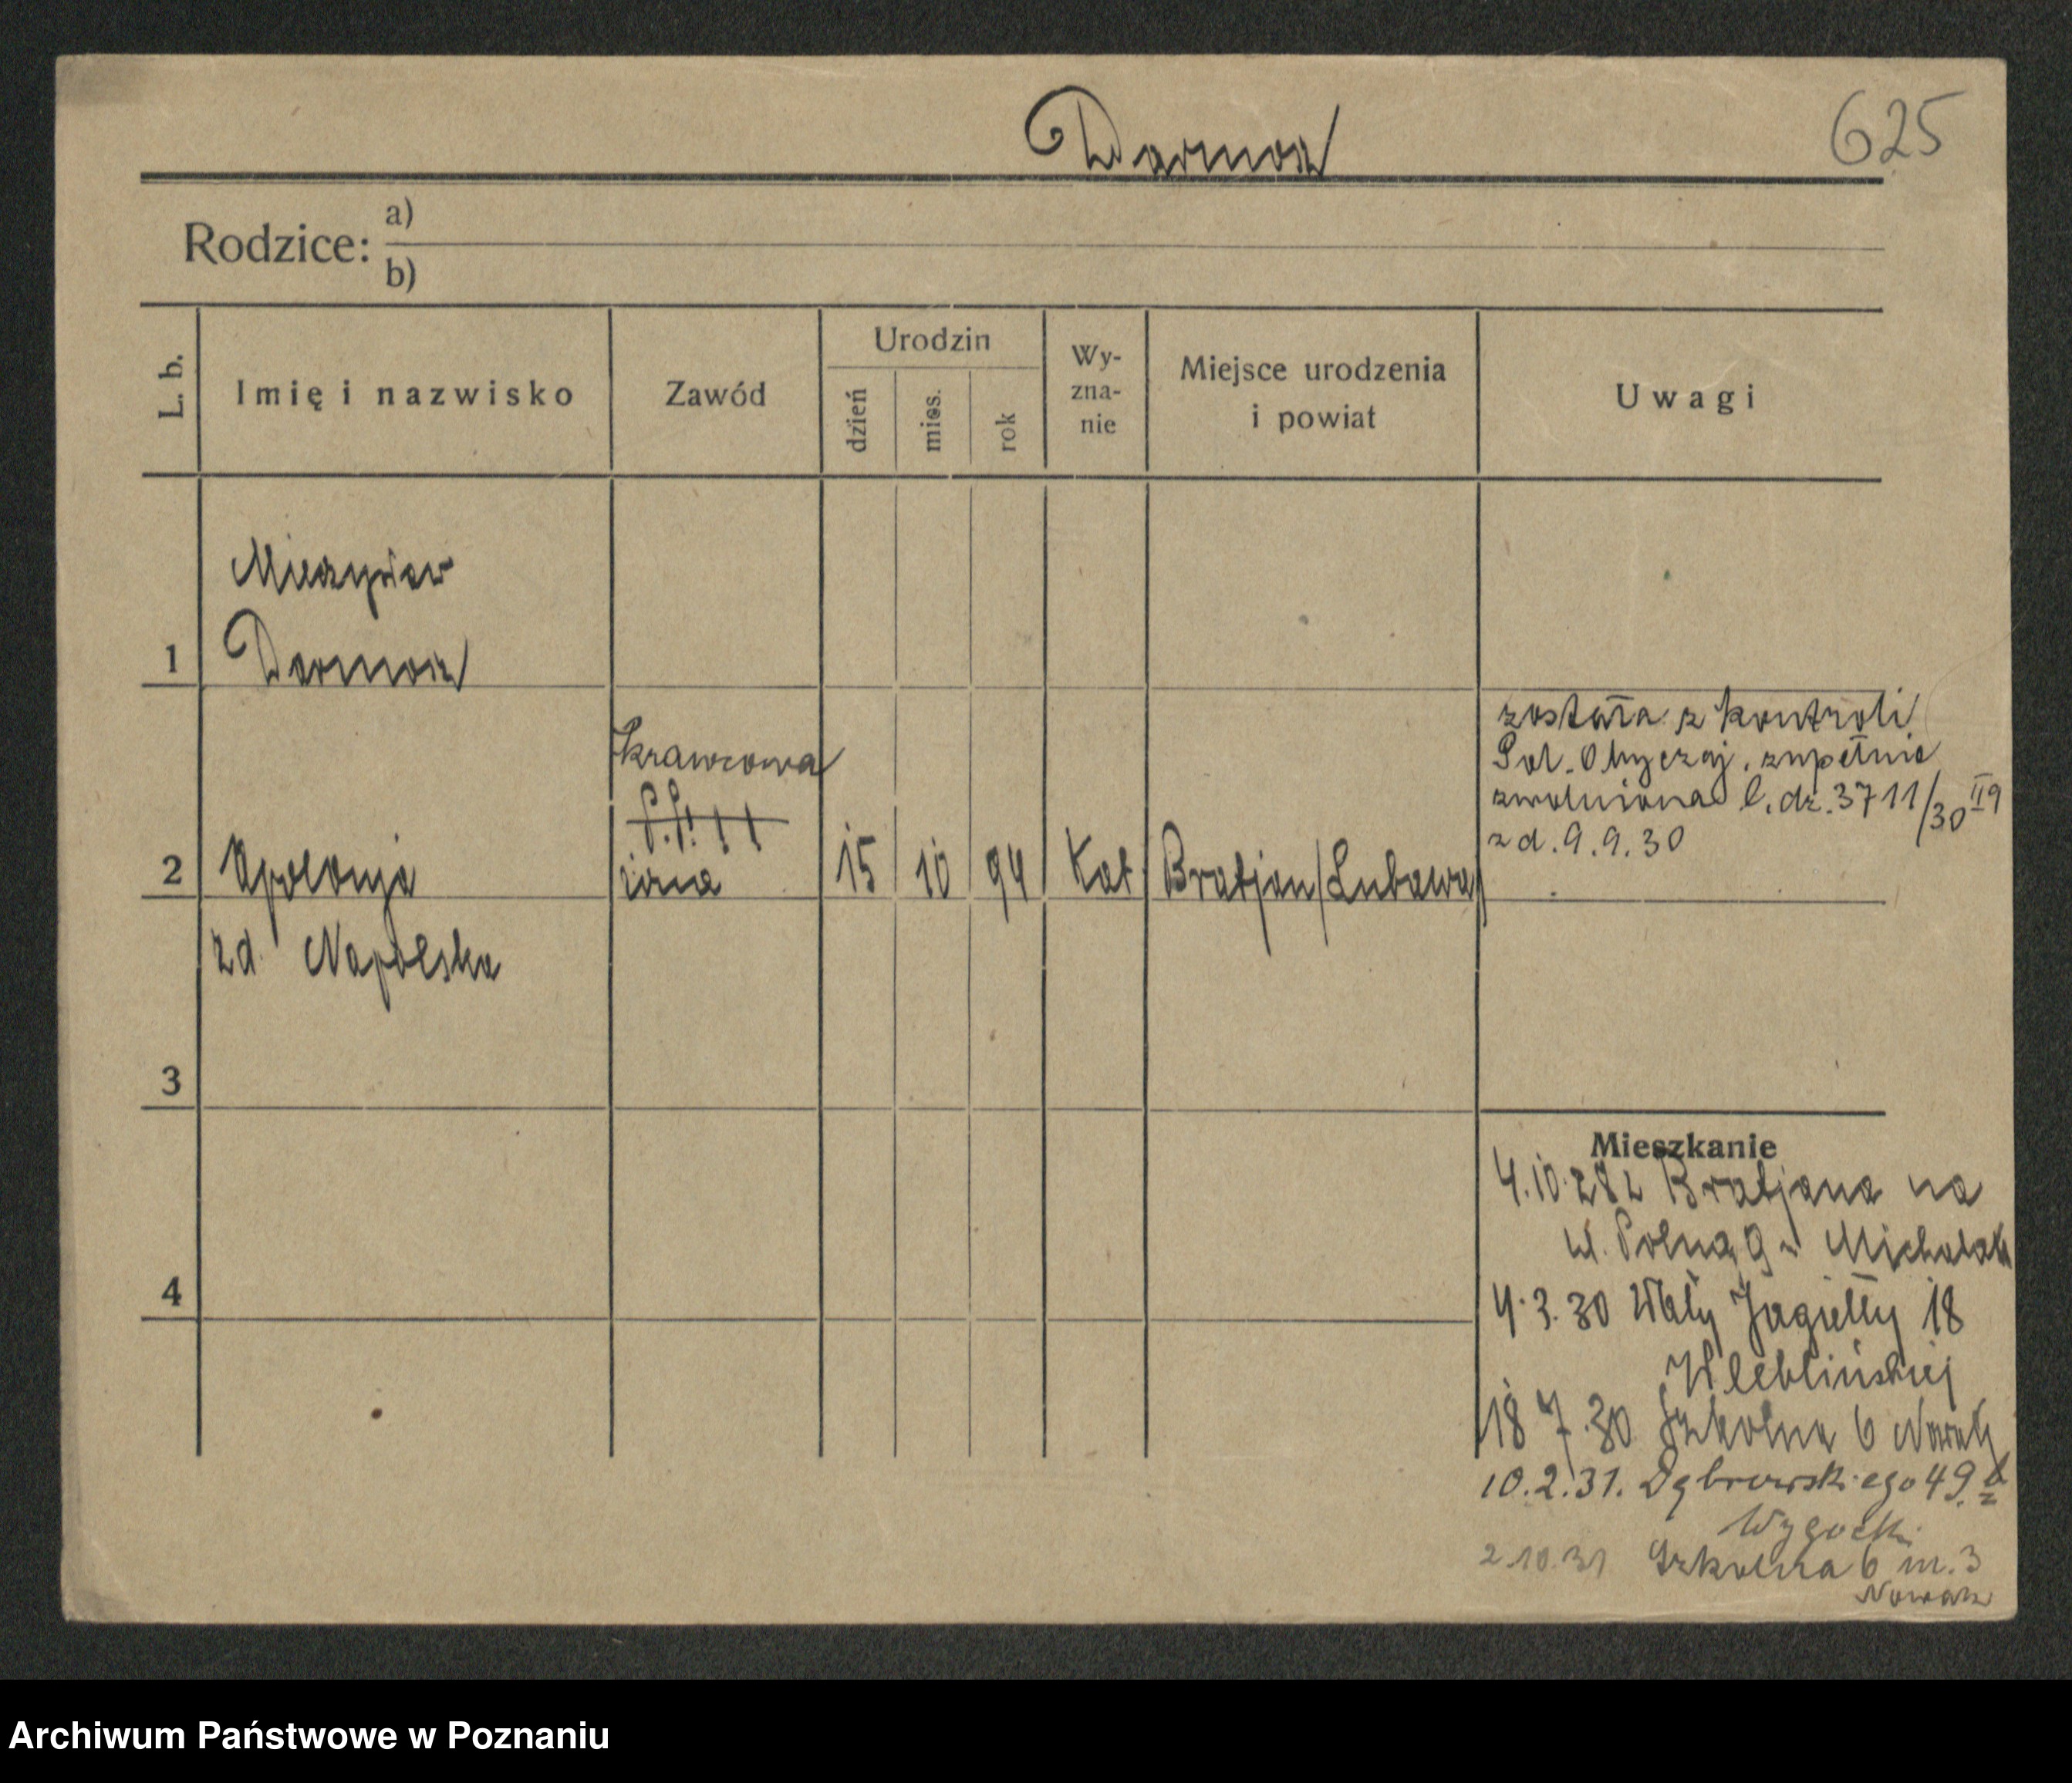 Darmosz
625
Rodzice: a)
b)
L. b.
Imię i nazwisko
Zawód
Urodzin
dzień
mies.
rok
Wy-
zna-
nie
Miejsce urodzenia
i powiat
Uwagi
1
Mieczysław
Darmosz
2
Apolonja
zd. Napolska
krawcowa
żona
15
10
94
Kat
Bratjan/Lubawa
została z kontroli
Pol. Obyczaj. zupełnie
zwolniona l. dz. 3711/30 II9
z d. 9.9.30
3
4
Mieszkanie
4.10.28 z Bratjana na
ul. Polną 9 Michalak
4.3.30 Wały Jagiełły 18
18 7.30 Szkolna 6 Nowak
10.2.31. Dąbrowskiego 49.
Wygocki
2.10.31 Szkolna 6 m. 3
Nowak
Archiwum Państwowe w Poznaniu